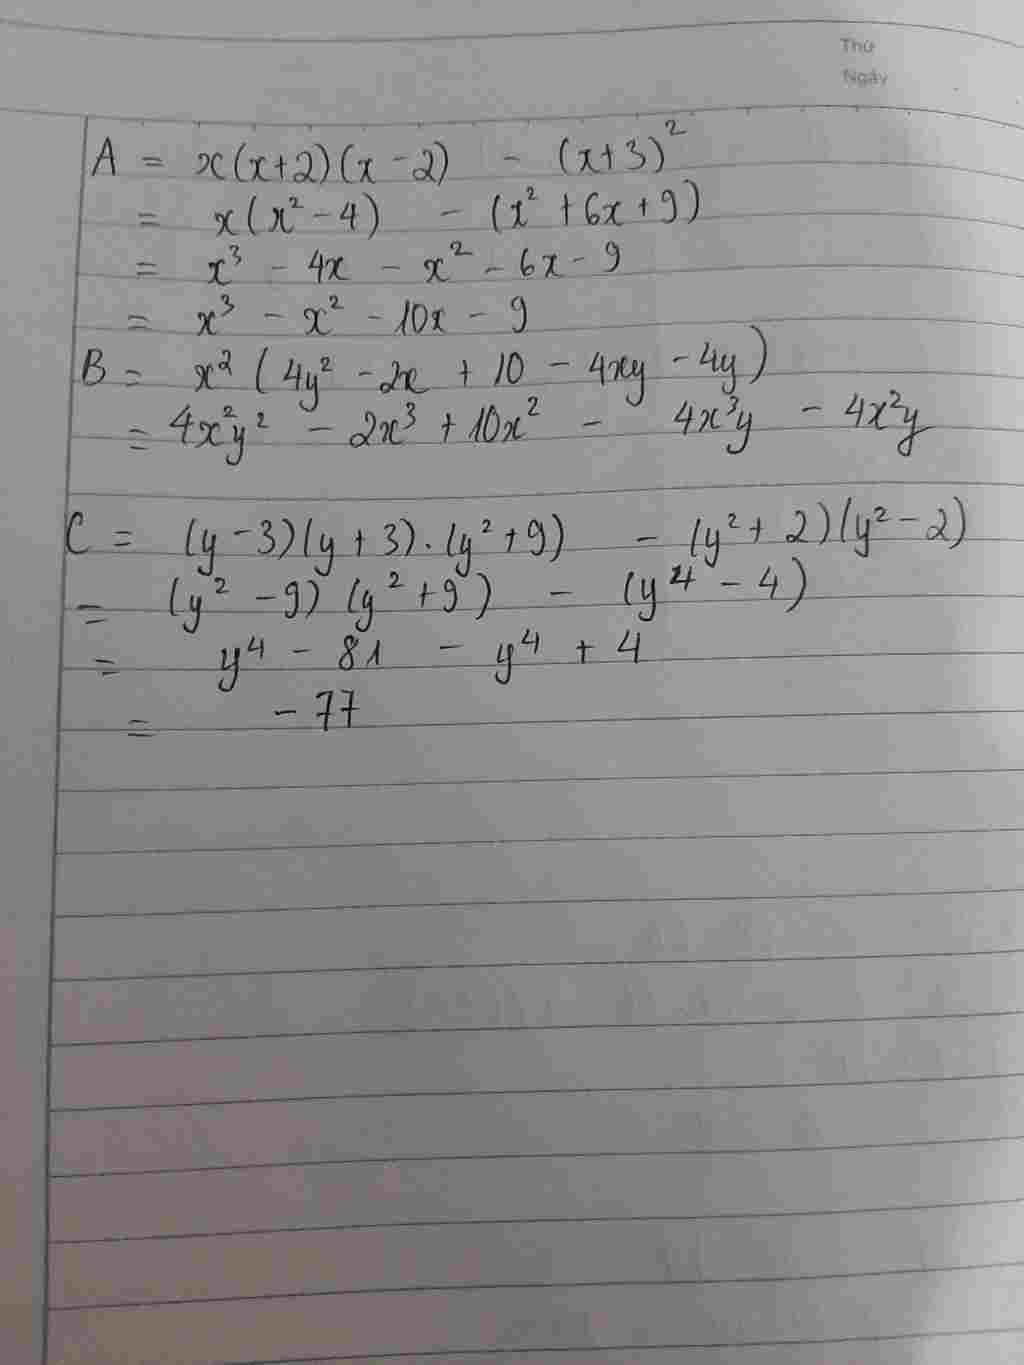 Thứ
Ngày
A = x(x+2)(x-2) - (x+3)²
= x(x²-4) - (x²+6x+9)
= x³ - 4x - x² - 6x - 9
= x³ - x² - 10x - 9
B = x²(4y² - 2x + 10 - 4xy - 4y)
= 4x²y² - 2x³ + 10x² - 4x³y - 4x²y
C = (y-3)(y+3).(y²+9) - (y²+2)(y²-2)
= (y²-9)(y²+9) - (y⁴-4)
= y⁴ - 81 - y⁴ + 4
= -77